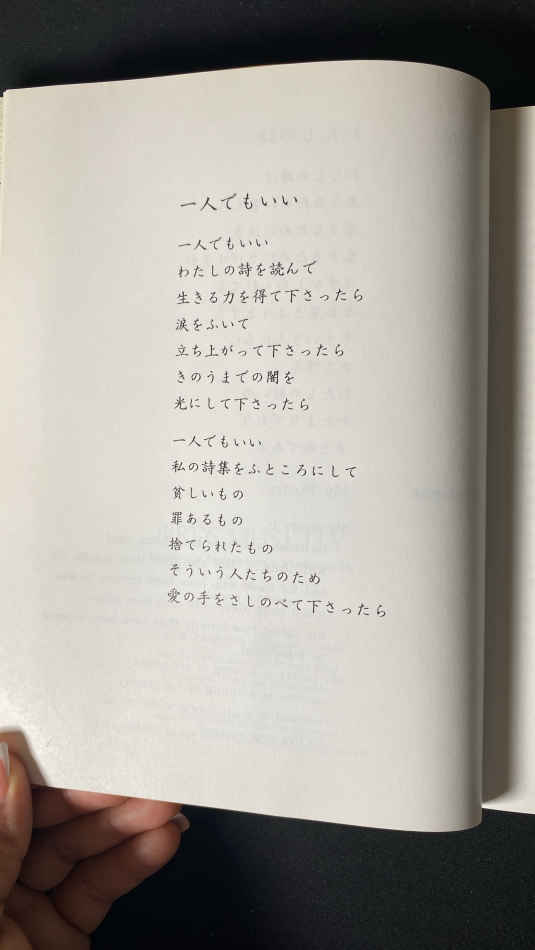 一人でもいい
一人でもいい
わたしの詩を読んで
生きる力を得て下さったら
涙をふいて
立ち上がって下さったら
きのうまでの闇を
光にして下さったら
一人でもいい
私の詩集をふところにして
貧しいもの
罪あるもの
捨てられたもの
そういう人たちのため
愛の手をさしのべて下さったら